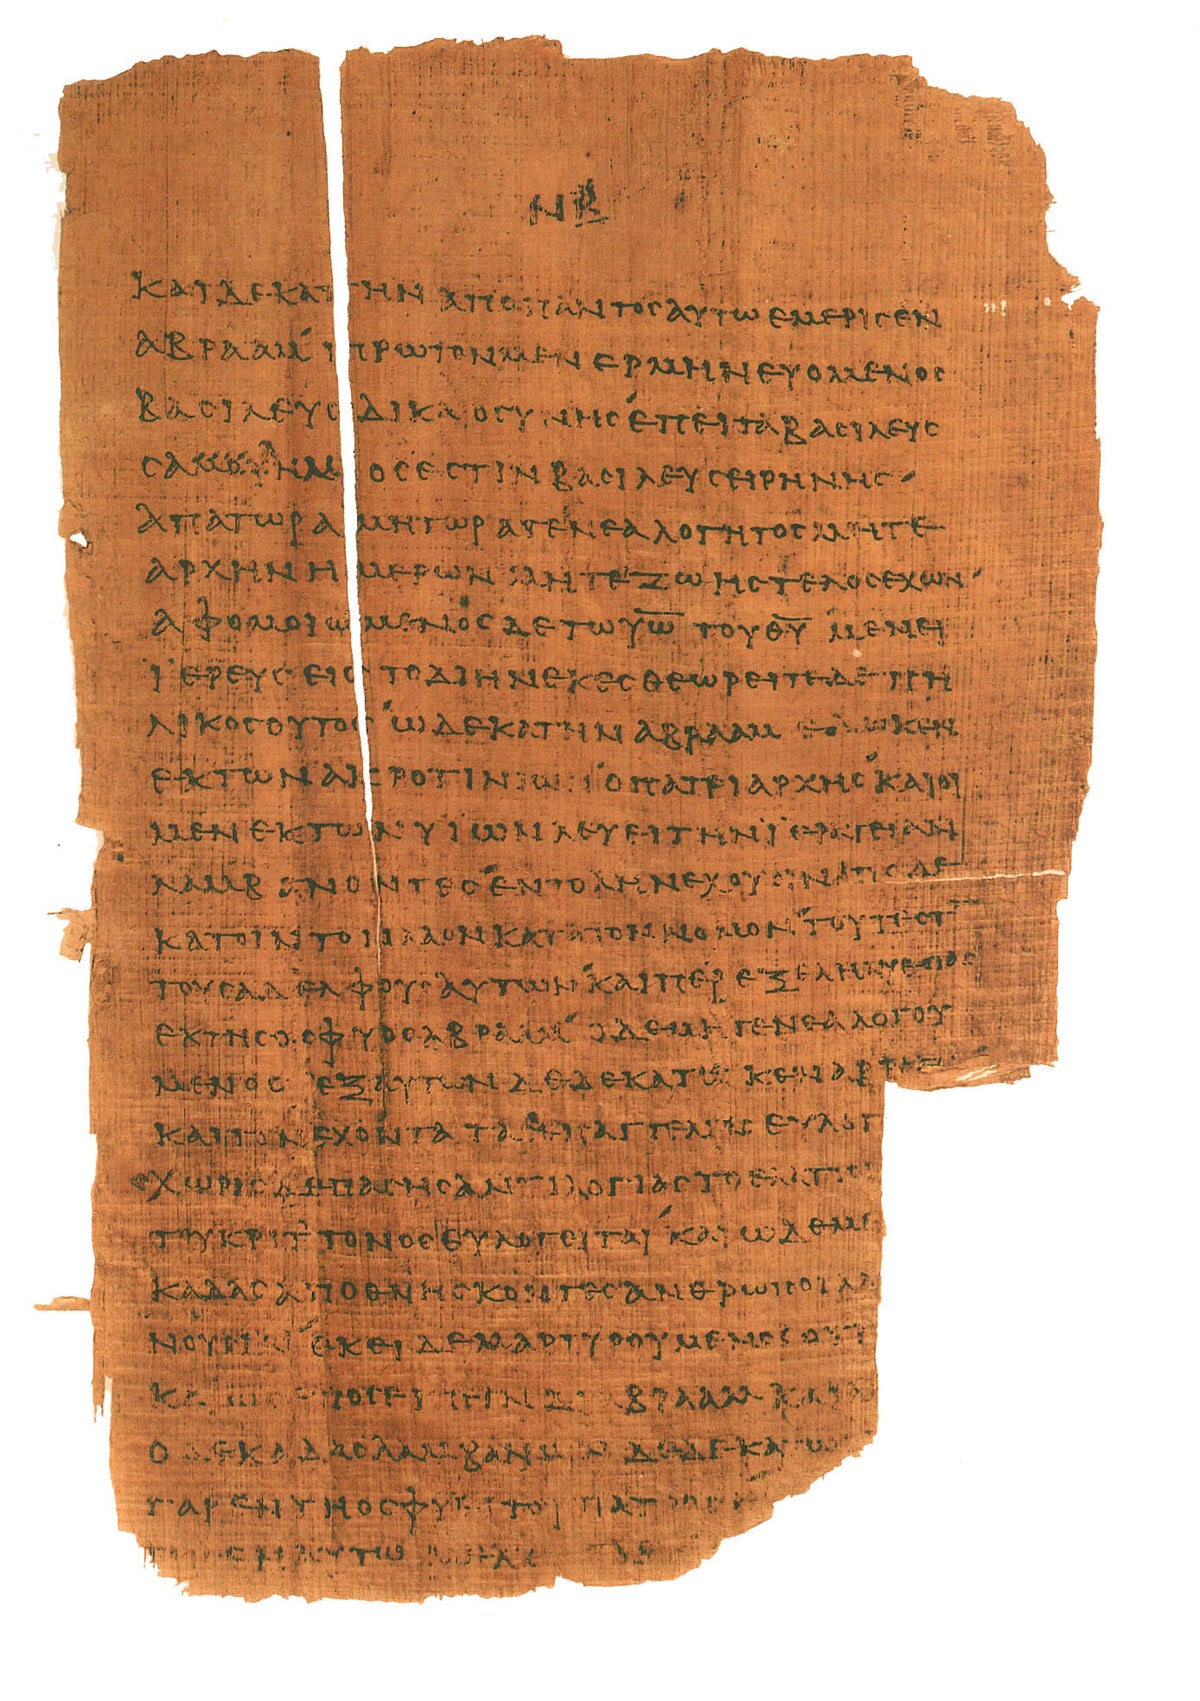 ΝΒ
ΚΑΙΔΕΚΑΤΗΝΑΠΟΠΑΝΤΟϹΑΥΤΩΕΜΕΡΙϹΕΝ
ΑΒΡΑΑΜ΄ΠΡΩΤΟΝΜΕΝΕΡΜΗΝΕΥΟΜΕΝΟϹ
ΒΑϹΙΛΕΥϹΔΙΚΑΙΟϹΥΝΗϹΈΠΕΙΤΑΒΑϹΙΛΕΥϹ
ΟϹΕϹΤΙΝΒΑϹΙΛΕΥϹΕΙΡΗΝΗϹ
ΑΠΑΤΩΡΑΜΗΤΩΡΑΓΕΝΕΑΛΟΓΗΤΟϹΜΗΤΕ
ΑΡΧΗΝΗΜΕΡΩΝΜΗΤΕΖΩΗϹΤΕΛΟϹΕΧΩΝ
ΑΦΟΜΟΙΩΜΕΝΟϹΔΕΤΩΥ̅Ω̅ΤΟΥΘ̅Υ̅ΜΕΝΕΙ
ΪΕΡΕΥϹΕΙϹΤΟΔΙΗΝΕΚΕϹΘΕΩΡΕΙΤΕΔΕΠΗ
ΛΙΚΟϹΟΥΤΟϹΏΔΕΚΑΤΗΝΑΒΡΑΑΜΕΔΩΚΕΝ
ΕΚΤΩΝΑΚΡΟΤΙΝΙΩΝΟΠΑΤΡΙΑΡΧΗϹ΄ΚΑΙΟΙ
ΜΕΝΕΚΤΩΝΥΙΩΝΛΕΥΕΙΤΗΝΪΕΡΑΤΕΙΑΝ
ΛΑΜΒΑΝΟΝΤΕϹΈΝΤΟΛΗΝΕΧΟΥϹΙΝΑΠΟΔΕ
ΚΑΤΟΙΝΤΟΝΛΑΟΝΚΑΤΑΤΟΝΝΟΜΟΝ΄ΤΟΥΤΕϹΤ
ΤΟΥϹΑΔΕΛΦΟΥϹΑΥΤΩΝ΄ΚΑΙΠΕΡ
ΟϹΦΥΟϹΑΒΡΑΑΜ΄ΟΔΕΜΗΓΕΝΕΑΛΟΓΟΥ
ΜΕΝΟϹΕΞΑΥΤΩΝΔΕΔΕΚΑΤΩΚΕΝ
ΚΑΙΤΟΝΕΧΟΝΤΑΤΑϹ
ΧΩΡΙϹΔΕΠΑϹΗϹΑΝΤΙΛΟΓΙΑϹΤΟΕΛΑΤΤ
ΤΟΥΚΡΙΤΤΟΝΟϹΕΥΛΟΓΕΙΤΑΙ΄ΚΑΙΩΔΕΜΕ
ΑΠΟΘΝΗϹΚΟΝΤΕϹΑΝΘΡΩΠΟΙΛΑ
ΈΚΕΙΔΕΜΑΡΤΥΡΟΥΜΕΝΟϹΟΤΙ
ΑΒΡΑΑΜ
ΛΑΜΒΑΝΩΝΔΕΔΕΚΑΤΩ
ΓΑΡΕΝΤΗΟϹΦΥΙΤΟΥΠΑΤ